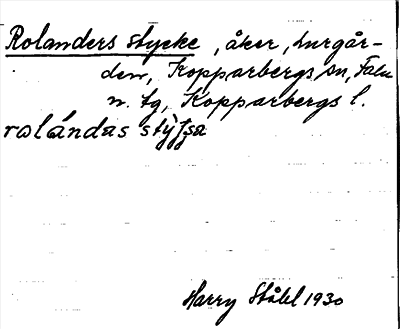 Rolanders stycke, åker, hurgår-
den, Kopparbergs sn, Falu
n. tg, Kopparbergs l.
rolándas stỳtsa
Harry Ståhl 1930